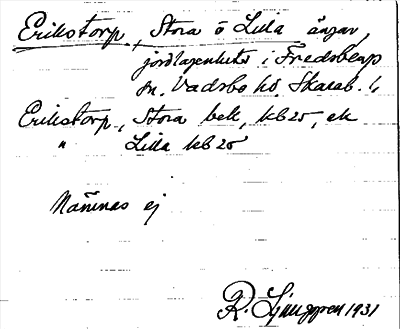 Erikstorp, Stora o Lilla ängar,
jordlägenheter i Fredsberg
sn, Vadsbo hd, Skarab. l.
Erikstorp, Stora bek, kb 25, ek
" Lilla kb 25
Nämnas ej
R. Ljunggren 1931